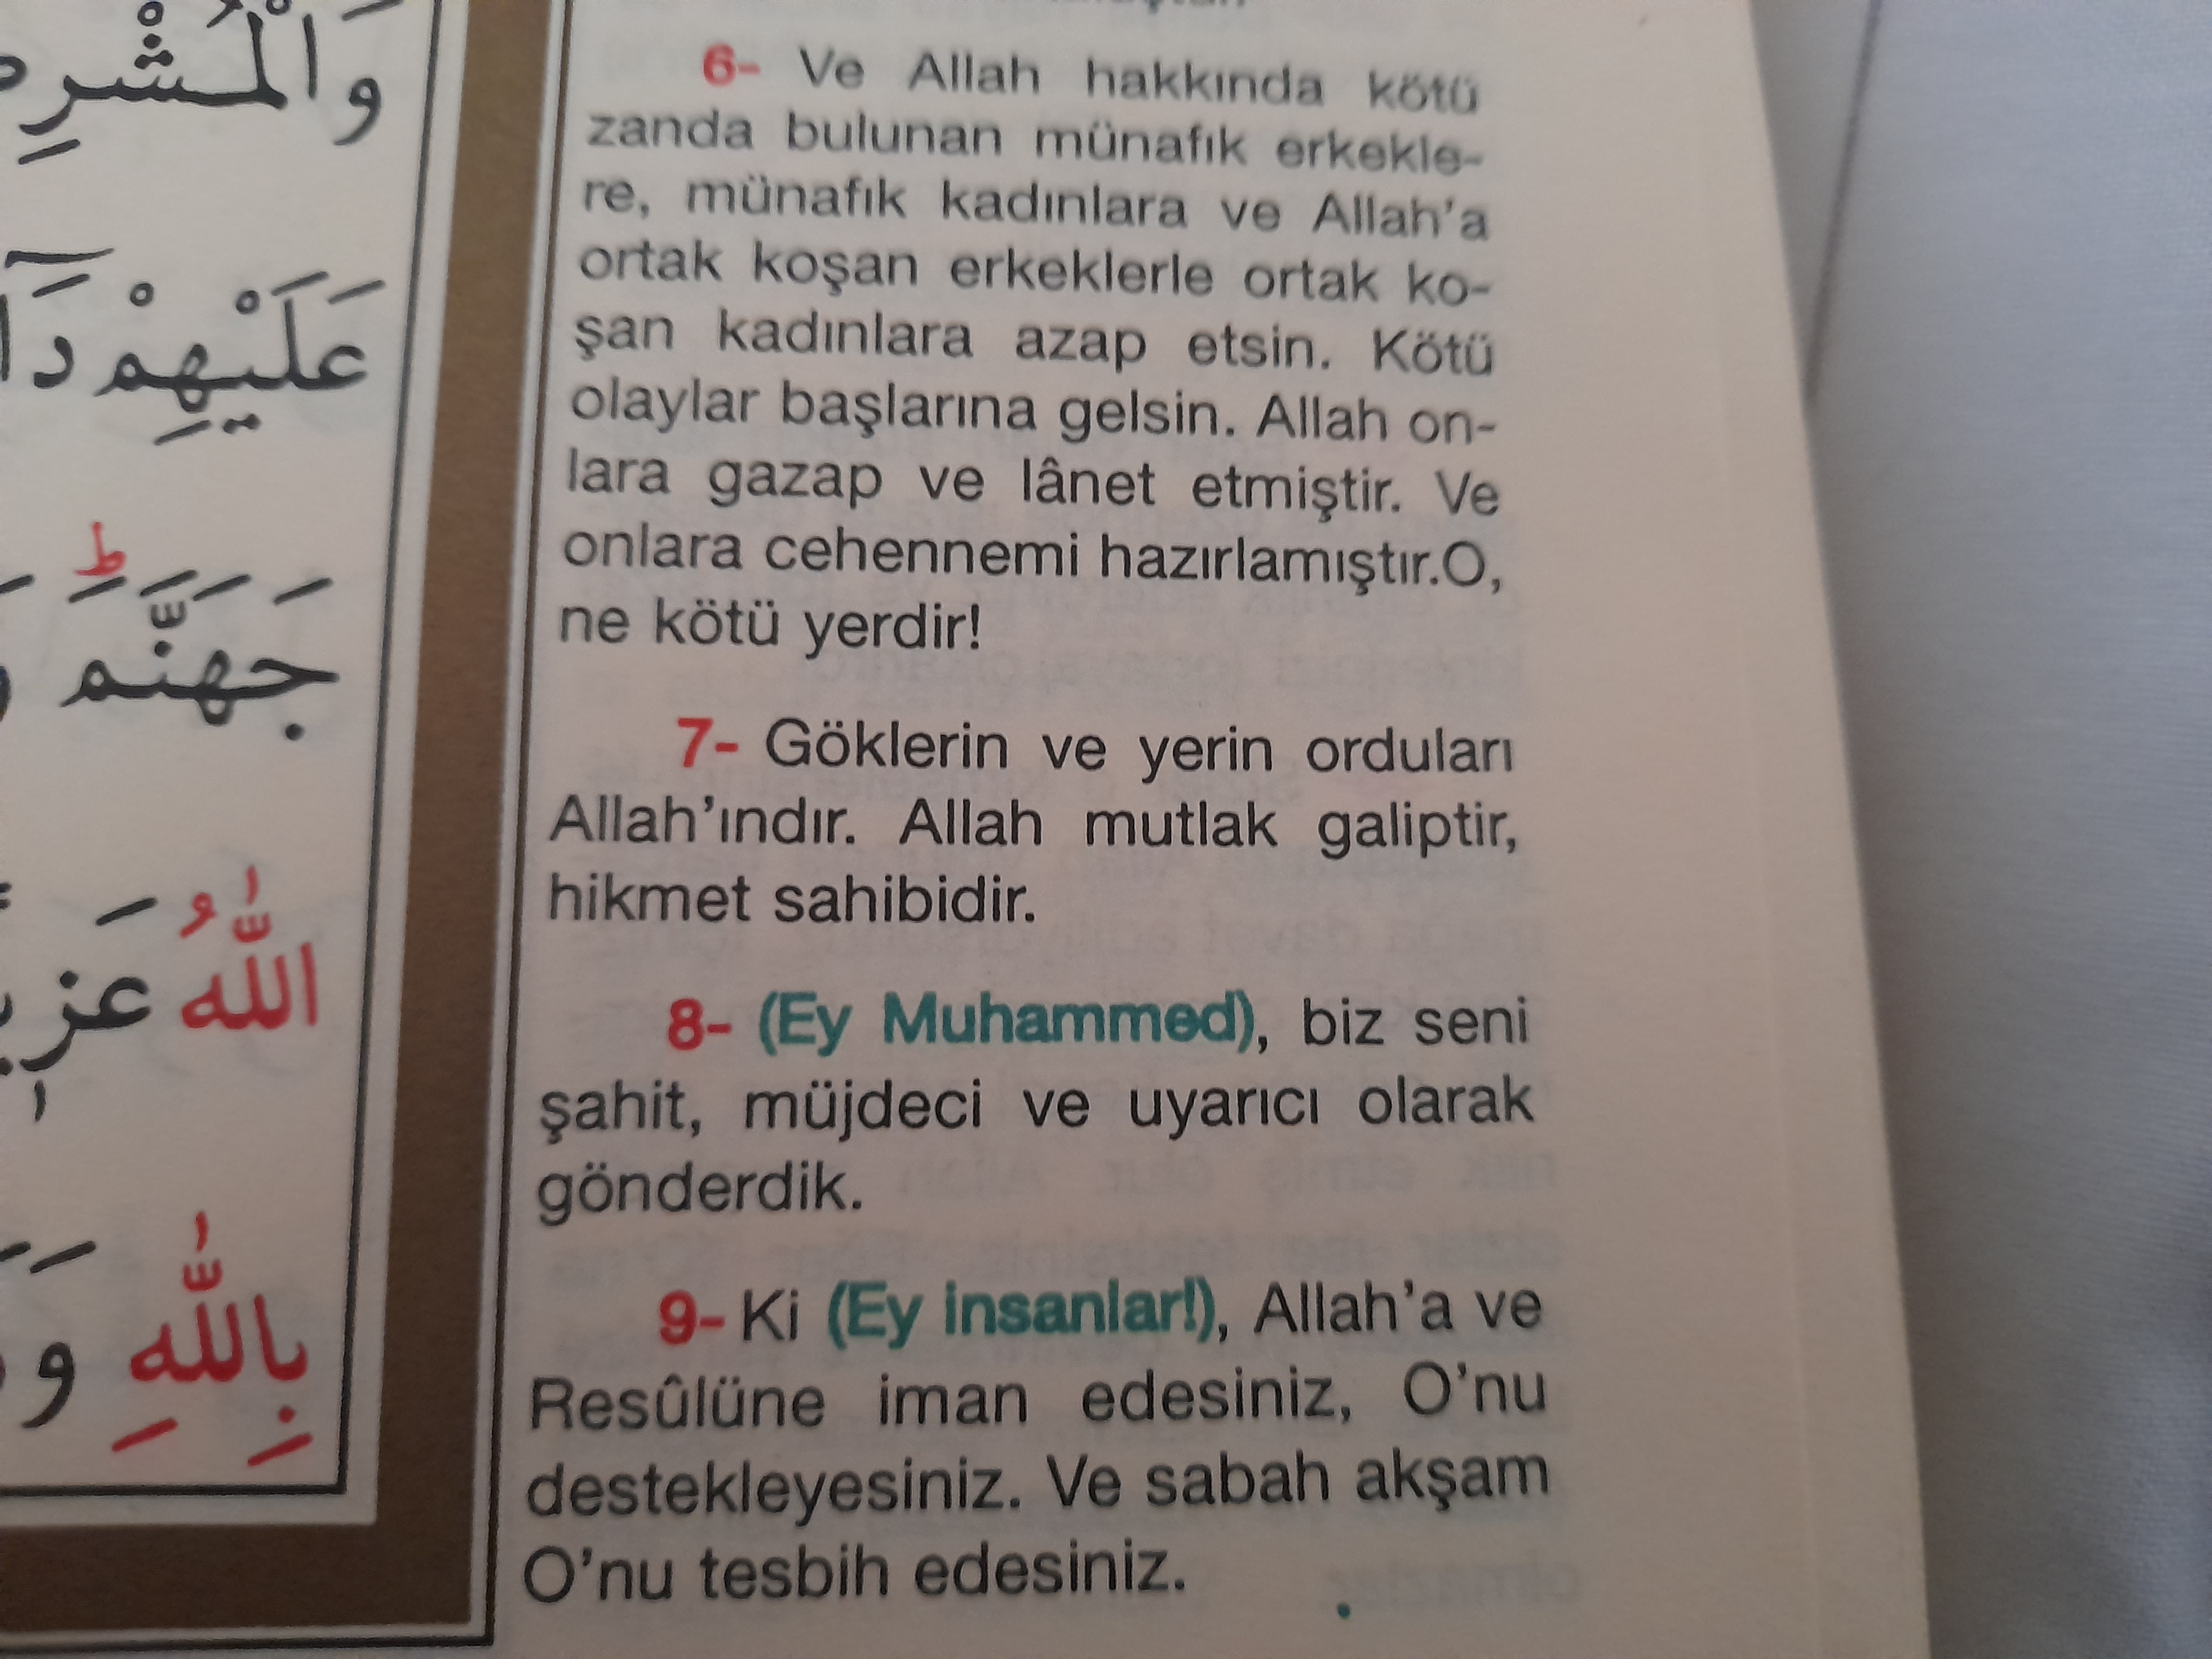 6- Ve Allah hakkında kötü
zanda bulunan münafık erkekle-
re, münafık kadınlara ve Allah'a
ortak koşan erkeklerle ortak ko-
şan kadınlara azap etsin. Kötü
olaylar başlarına gelsin. Allah on-
lara gazap ve lânet etmiştir. Ve
onlara cehennemi hazırlamıştır.O,
ne kötü yerdir!
7- Göklerin ve yerin orduları
Allah'ındır. Allah mutlak galiptir,
hikmet sahibidir.
8- (Ey Muhammed), biz seni
şahit, müjdeci ve uyarıcı olarak
gönderdik.
9- Ki (Ey insanlar!), Allah'a ve
Resûlüne iman edesiniz, O'nu
destekleyesiniz. Ve sabah akşam
O'nu tesbih edesiniz.
عَلَيْهِمْ
جَهَنَّمَ
اللّٰهُ
بِاللّٰهِ